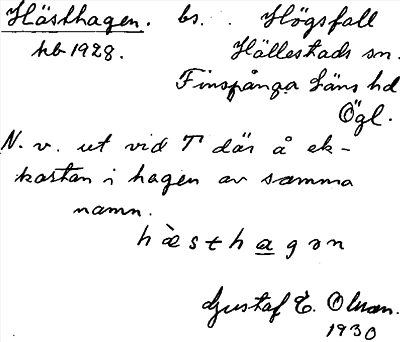 Hästhagen. bs. Högsfall
kb 1928. Hällestads sn.
Finspånga Läns hd
Ögl.
N. v. ut vid T där å ek-
kartan i hagen av samma
namn.
hæ̀sthagən
Gustaf E. Olson.
1930